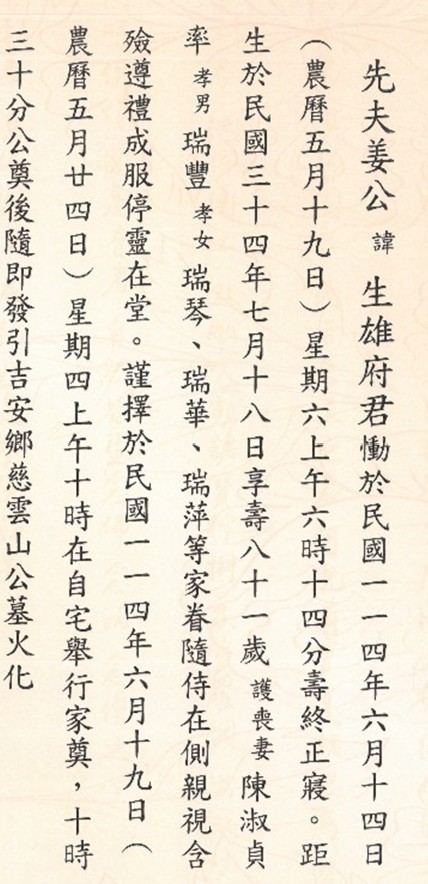 先夫姜公 諱 生雄府君慟於民國一一四年六月十四日
（農曆五月十九日）星期六上午六時十四分壽終正寢。距
生於民國三十四年七月十八日享壽八十一歲 護喪妻 陳淑貞
率 孝男 瑞豐 孝女 瑞琴、瑞華、瑞萍等家眷隨侍在側親視含
殮遵禮成服停靈在堂。謹擇於民國一一四年六月十九日（
農曆五月廿四日）星期四上午十時在自宅舉行家奠，十時
三十分公奠後隨即發引吉安鄉慈雲山公墓火化